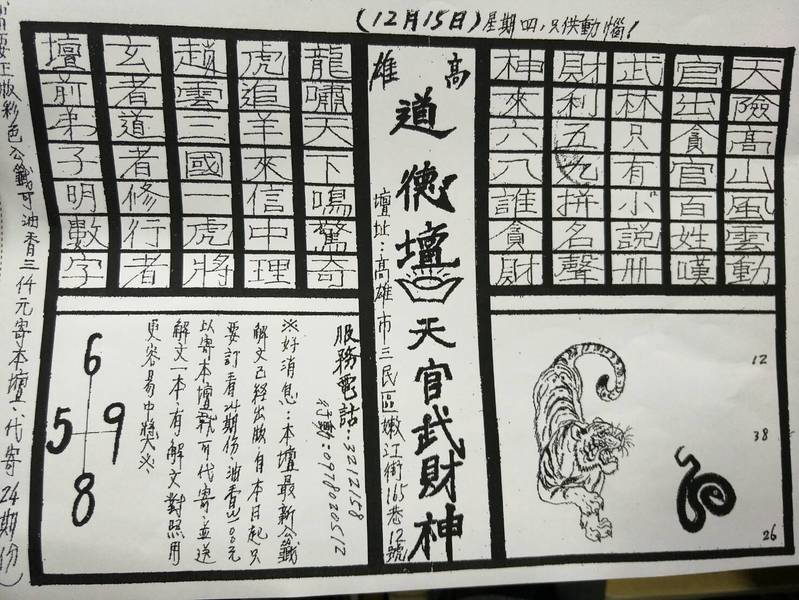 (12月15日)星期四,只供動惱!
天險高山風雲動
官出貪官百姓嘆
武林只有小說冊
財利五九拼名聲
神來六八誰貪財
高雄
道德壇
天官武財神
壇址:高雄市三民區嫩江街165巷12號
龍嘯天下鳴驚奇
虎追羊來信中理
趙雲三國一虎將
玄者道者修行者
壇前弟子明數字
12
38
26
服務電話:3212158
行動:0978020512
※好消息:本壇最新公籤
解文已經出版,自本日起,只
要訂看24期份,油香
以寄本壇就可代寄,並送
解文一本,有了解文對照用
更容易中獎※
6
5 9
8
要正版彩色公籤可油香三仟元寄本壇,代寄24期份)